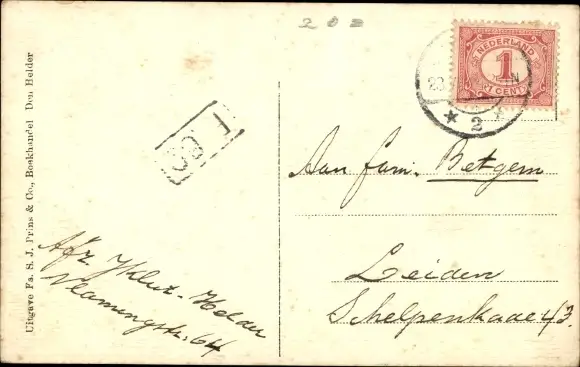 202
NEDERLAND
1
CENT
2
Aan fam. Betgem
Leiden
Schelpenkade 43.
Afz. Klut-Helder
Vlamingstr. 64
Uitgave Fa. S. J. Prins & Co., Boekhandel Den Helder